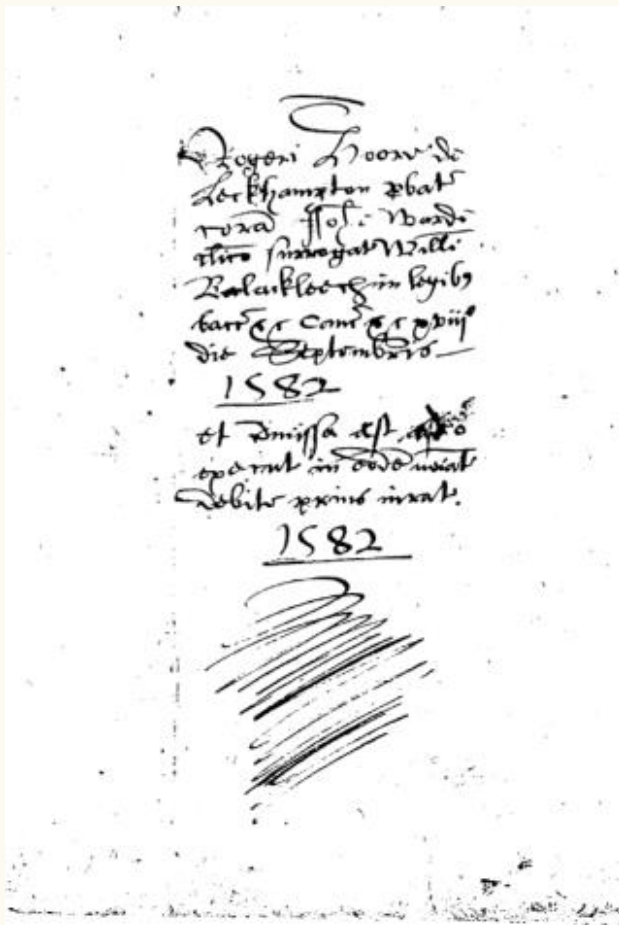 T
Rogeri Hoore de
Leckhampton pbat
corā Joh̄e Warde
clico surrogat Willi
Blackleech in legibus
bacc &c Canc &c xviijo
die Septembris
1582
et comissa est
execut in eodē noiat
debite prius iurat.
1582